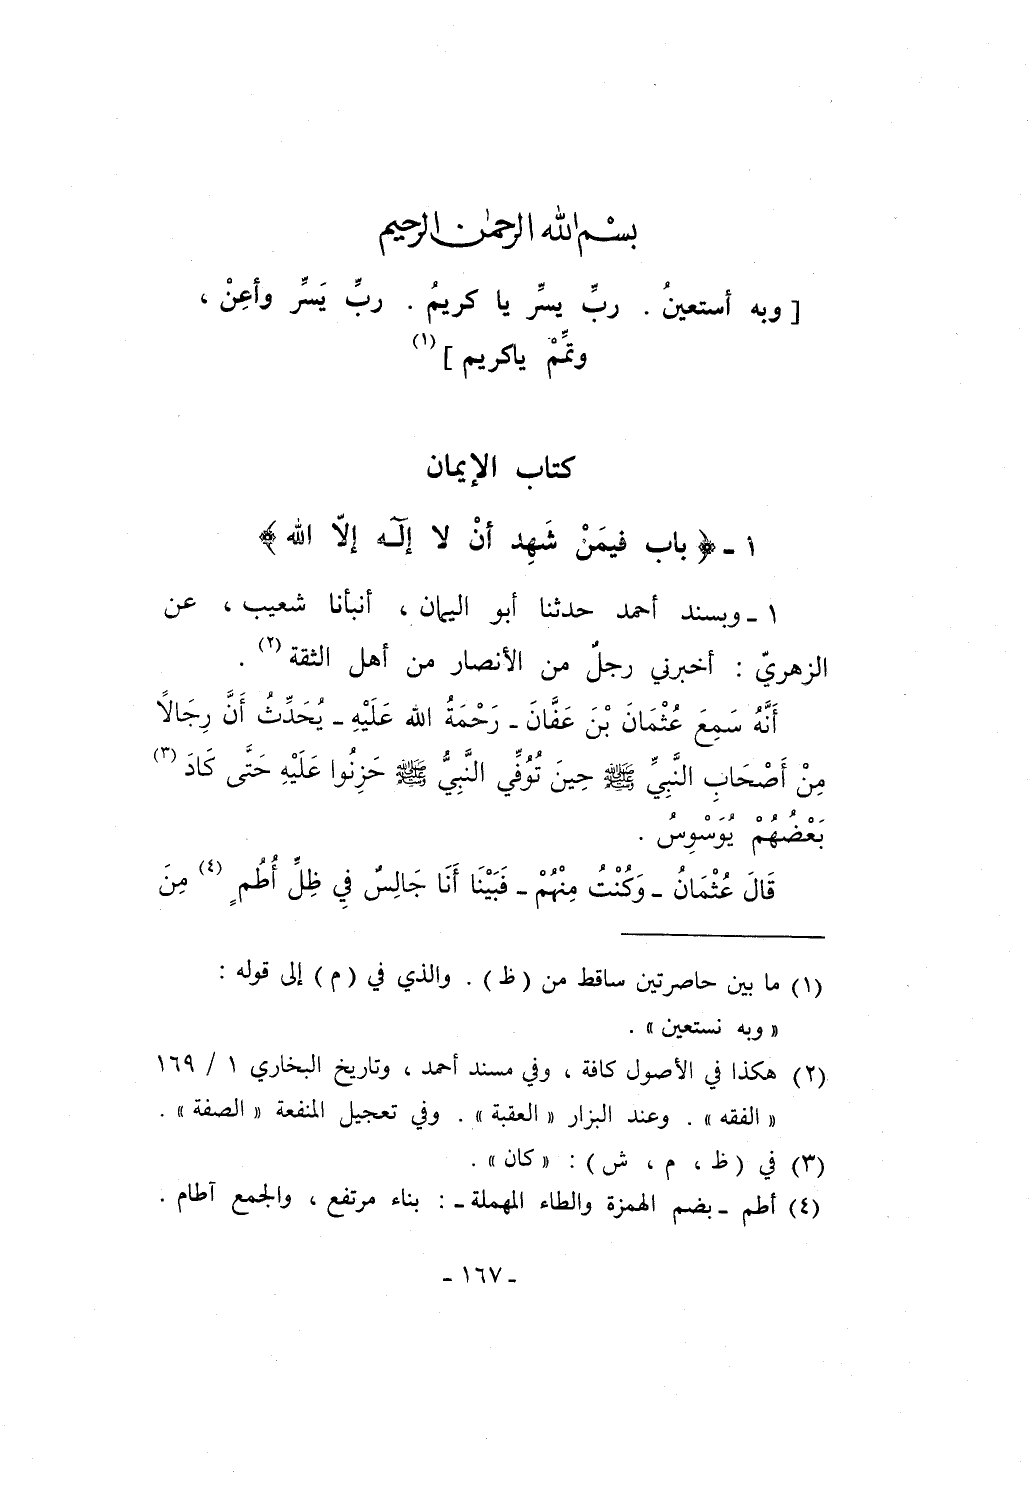 بسْم الله الرحمٰن الرحيم
[ وبه أستعينُ . ربِّ يسرِّ يا كريمُ . ربِّ يَسرِّ وأعِنْ ،
وتمِّمْ ياكريم ] (١)
كتاب الإيمان
١ ـ ﴿ باب فيمَنْ شَهِد أنْ لا إلٓه إلاّ الله ﴾
١ ـ وبسند أحمد حدثنا أبو اليمان ، أنبأنا شعيب ، عن
الزهريّ : أخبرني رجلٌ من الأنصار من أهل الثقة (٢) .
أَنَّهُ سَمِعَ عُثْمَانَ بْنَ عَفَّانَ ـ رَحْمَةُ الله عَلَيْهِ ـ يُحَدِّثُ أَنَّ رِجَالًا
مِنْ أَصْحَابِ النَّبِيِّ ﷺ حِينَ تُوُفِّي النَّبِيُّ ﷺ حَزِنُوا عَلَيْهِ حَتَّى كَادَ (٣)
بَعْضُهُمْ يُوَسْوِسُ .
قَالَ عُثْمَانُ ـ وَكُنْتُ مِنْهُمْ ـ فَبَيْنَا أَنَا جَالِسٌ فِي ظِلِّ أُطُمٍ (٤) مِنَ
(١) ما بين حاصرتين ساقط من ( ظ ) . والذي في ( م ) إلى قوله :
« وبه نستعين » .
(٢) هكذا في الأصول كافة ، وفي مسند أحمد ، وتاريخ البخاري ١ / ١٦٩
« الفقه » . وعند البزار « العقبة » . وفي تعجيل المنفعة « الصفة » .
(٣) في ( ظ ، م ، ش ) : « كان » .
(٤) أطم ـ بضم الهمزة والطاء المهملة ـ : بناء مرتفع ، والجمع آطام .
ـ ١٦٧ ـ